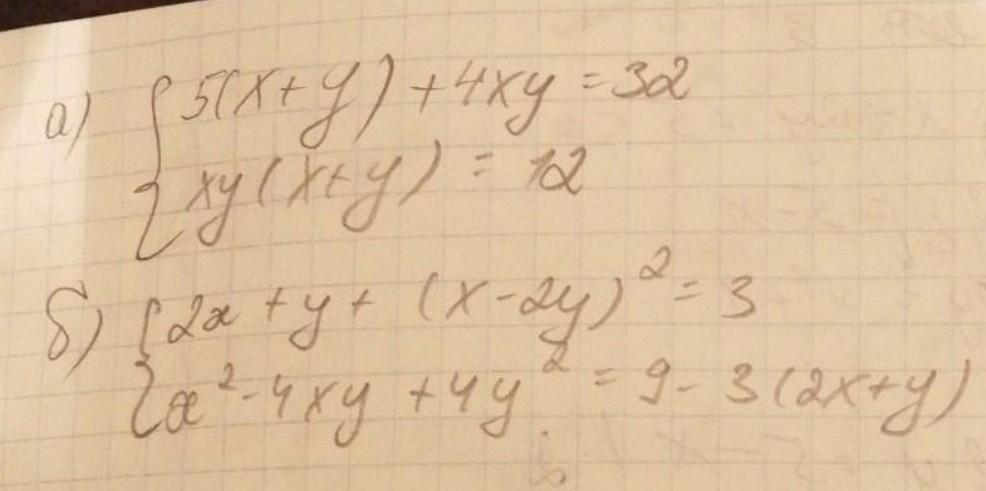 а) { 5(x+y)+4xy=32
xy(x+y)=12
б) { 2x+y+(x-2y)²=3
x²-4xy+4y²=9-3(2x+y)